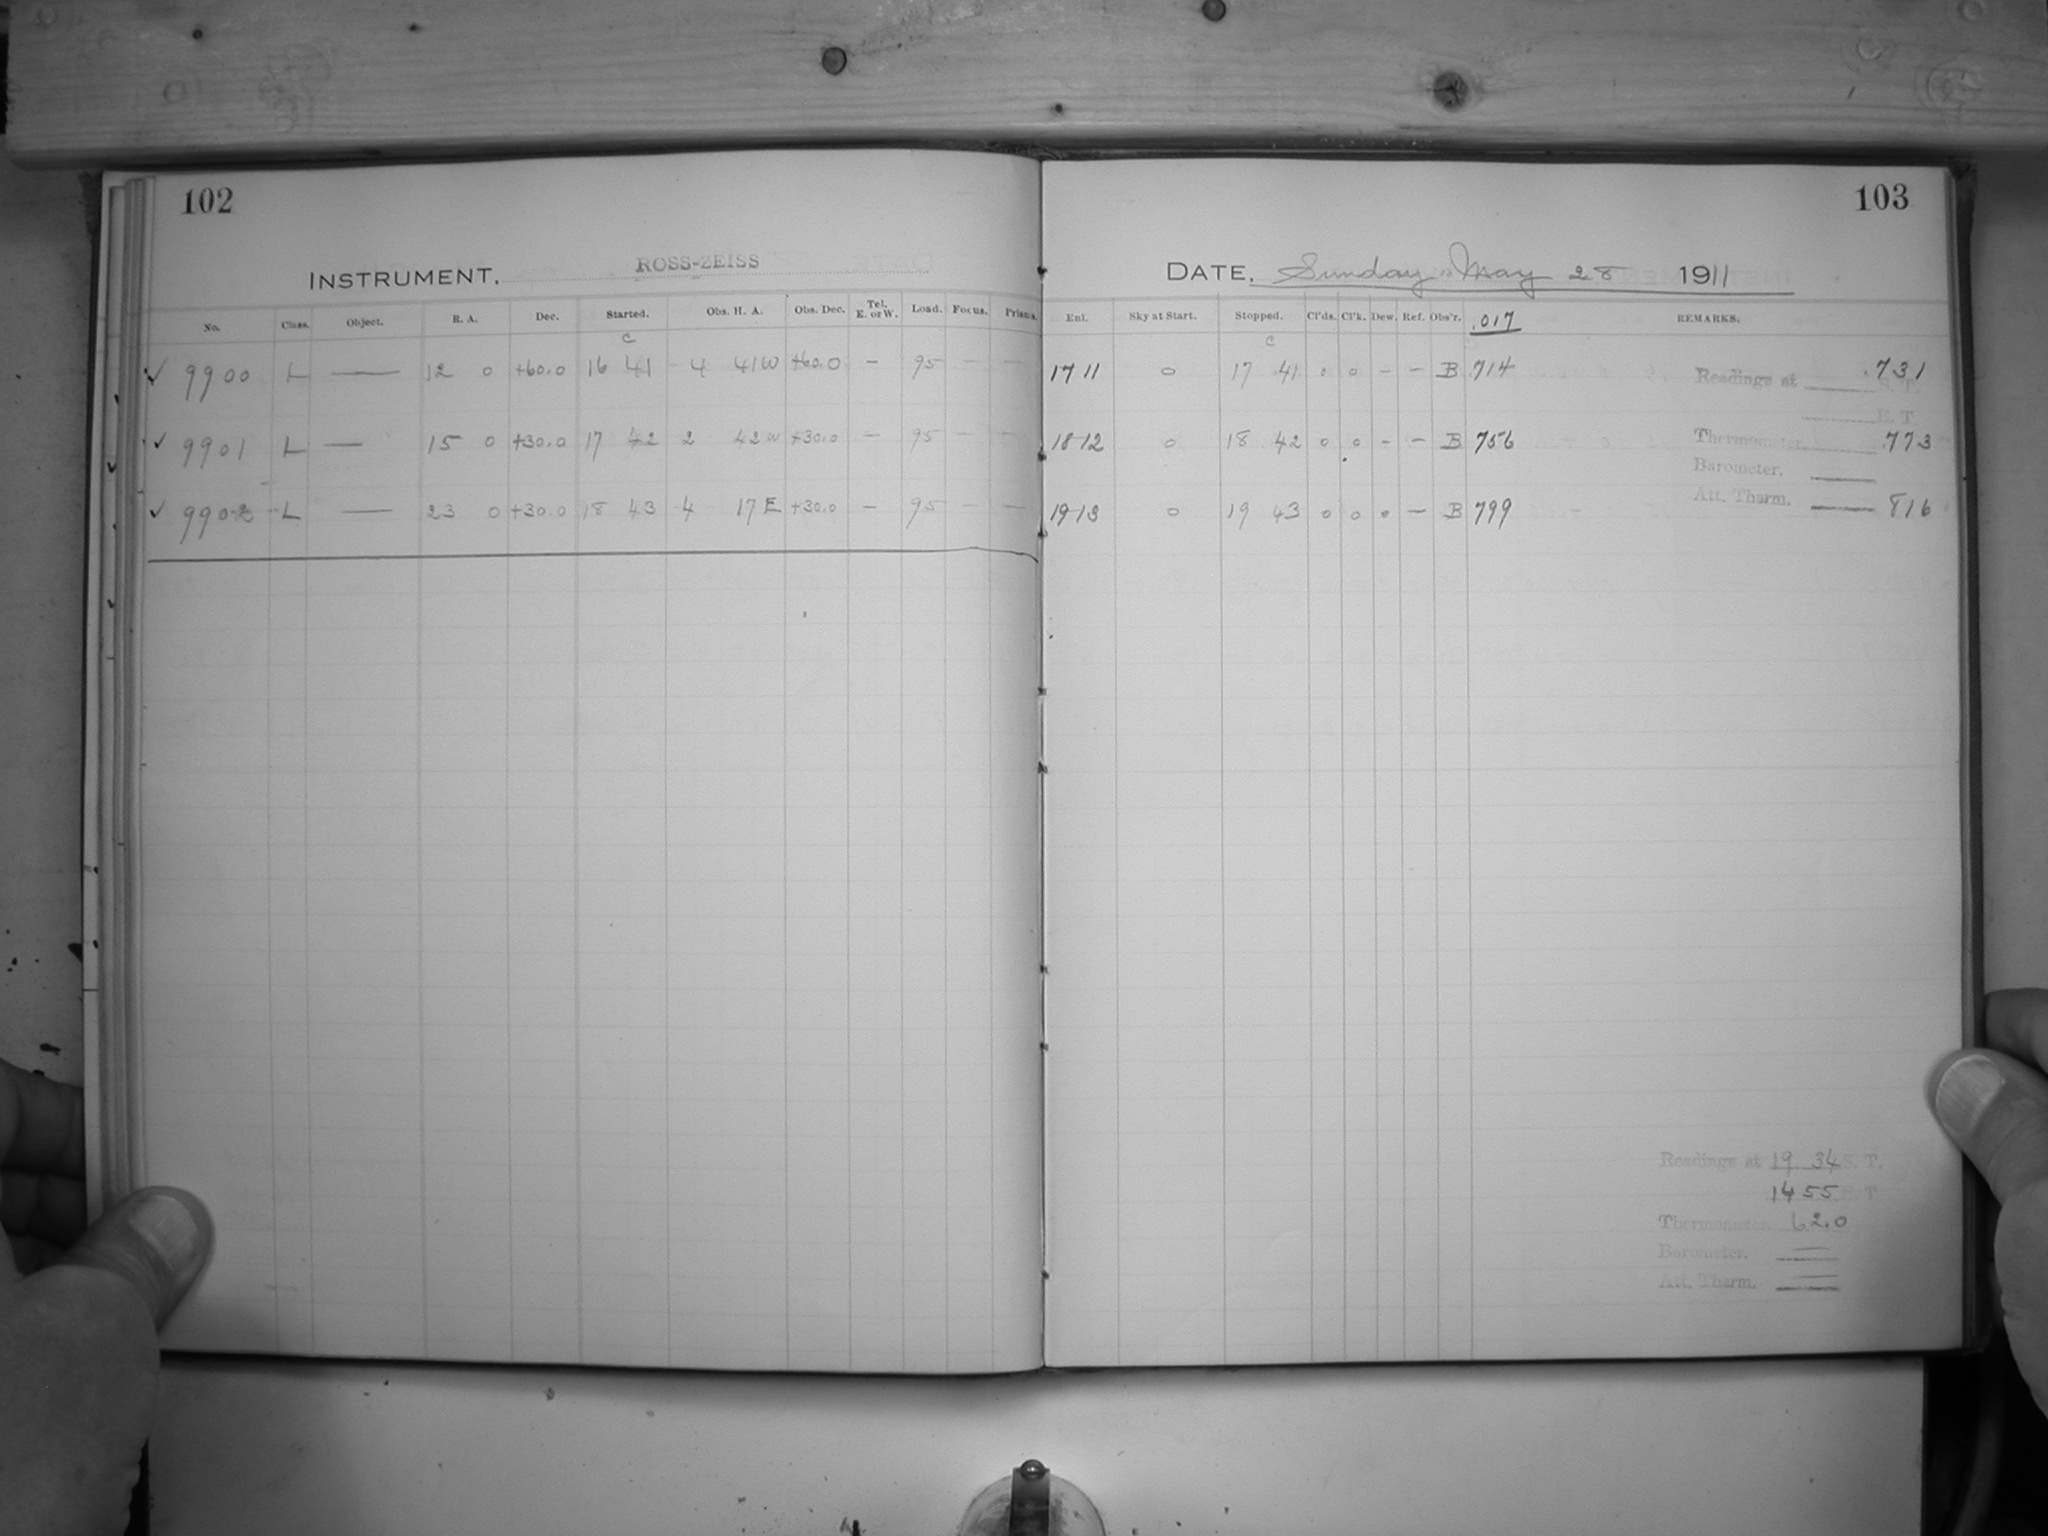 102
INSTRUMENT, ROSS-ZEISS
No. Class. Object. R. A. Dec. Started. Obs. H. A. Obs. Dec. Tel. E. or W. Load. Focus. Prisms.
C
✓ 9900 L — 12 0 +60.0 16 41 4 41W +60.0 – 95 — —
✓ 9901 L — 15 0 +30.0 17 42 2 42W +30.0 – 95 — —
✓ 9902 L — 23 0 +30.0 18 43 -4 17E +30.0 – 95 — —
103
DATE, Sunday May 28 1911
Enl. Sky at Start. Stopped. Cl'ds. Cl'k. Dew. Ref. Obs'r. .017 REMARKS.
C
17 11 0 17 41 0 0 – – B 714 Readings at .731
S. T.
E. T.
18 12 0 18 42 0 0 – – B 756 Thermometer. .773
Barometer.
19 13 0 19 43 0 0 0 – B 799 Att. Therm. 816
Readings at 19 34 S. T.
14 55 E. T
Thermometer. 62.0
Barometer. —
Att. Therm. —